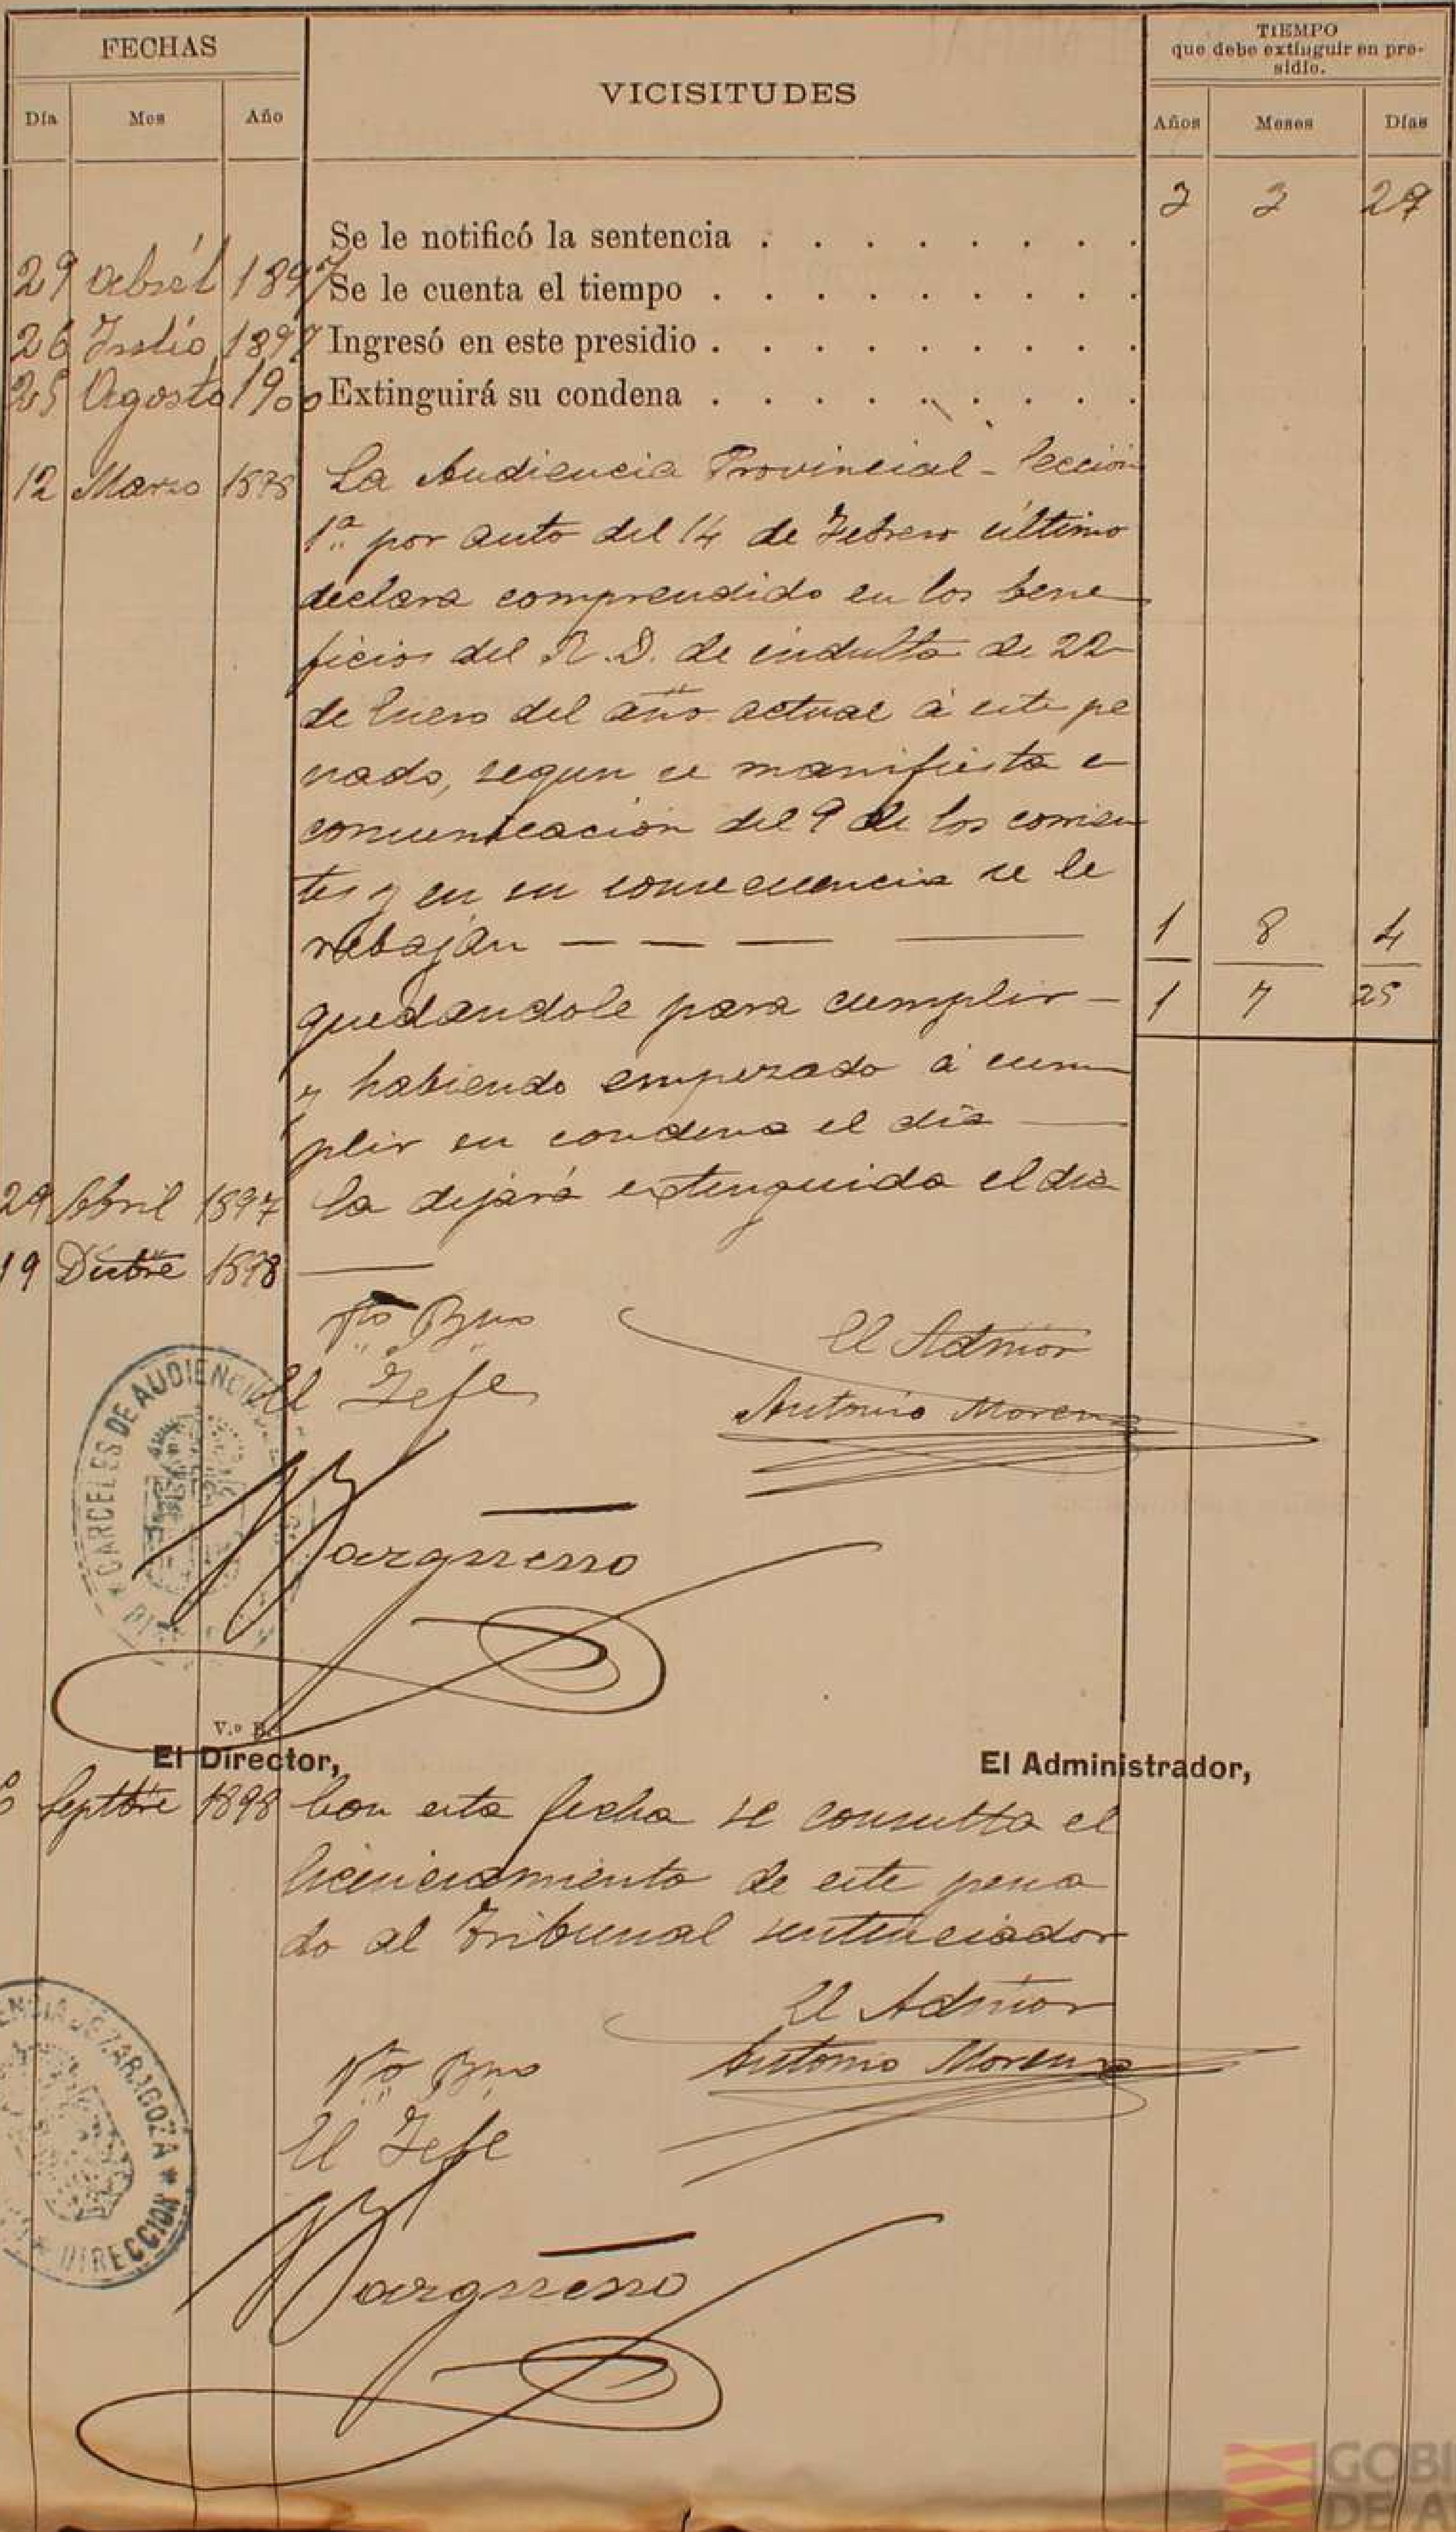 FECHAS
VICISITUDES
TIEMPO
que debe extinguir en pre-
sidio.
Día Mes Año
Años Meses Días
3 3 27
Se le notificó la sentencia . . . . . . . .
29 Abril 1897 Se le cuenta el tiempo . . . . . . . . .
26 Julio 1897 Ingresó en este presidio . . . . . . . . .
25 Agosto 1900 Extinguirá su condena . . . . . . . . .
12 Marzo 1898 La Audiencia Provincial - Sección
1ª por auto del 14 de Febrero último
declara comprendido en los bene
ficios del R. D. de indulto de 22
de Enero del año actual á este pe
nado, segun se manifiesta e
comunicación del 9 de los corrien
tes y en su consecuencia se le
rebajan — — — — 1 8 4
quedandole para cumplir — 1 7 25
y habiendo empezado á cum
plir su condena el día —
29 Abril 1897 la dejará extinguida el dia
19 Dicbre 1898 —
Vto Bno
El Admor
El Jefe
Antonio Moreno
CARCELES DE AUDIENCIA
V.º B.º
El Director,
El Administrador,
Septbre 1898 Con esta fecha se consulta el
licenciamiento de este pena
do al Tribunal sentenciador
El Admor
Vto Bno
Antonio Moreno
El Jefe
ENCIA DE ZARAGOZA * DIRECCION
GOBI
DE A